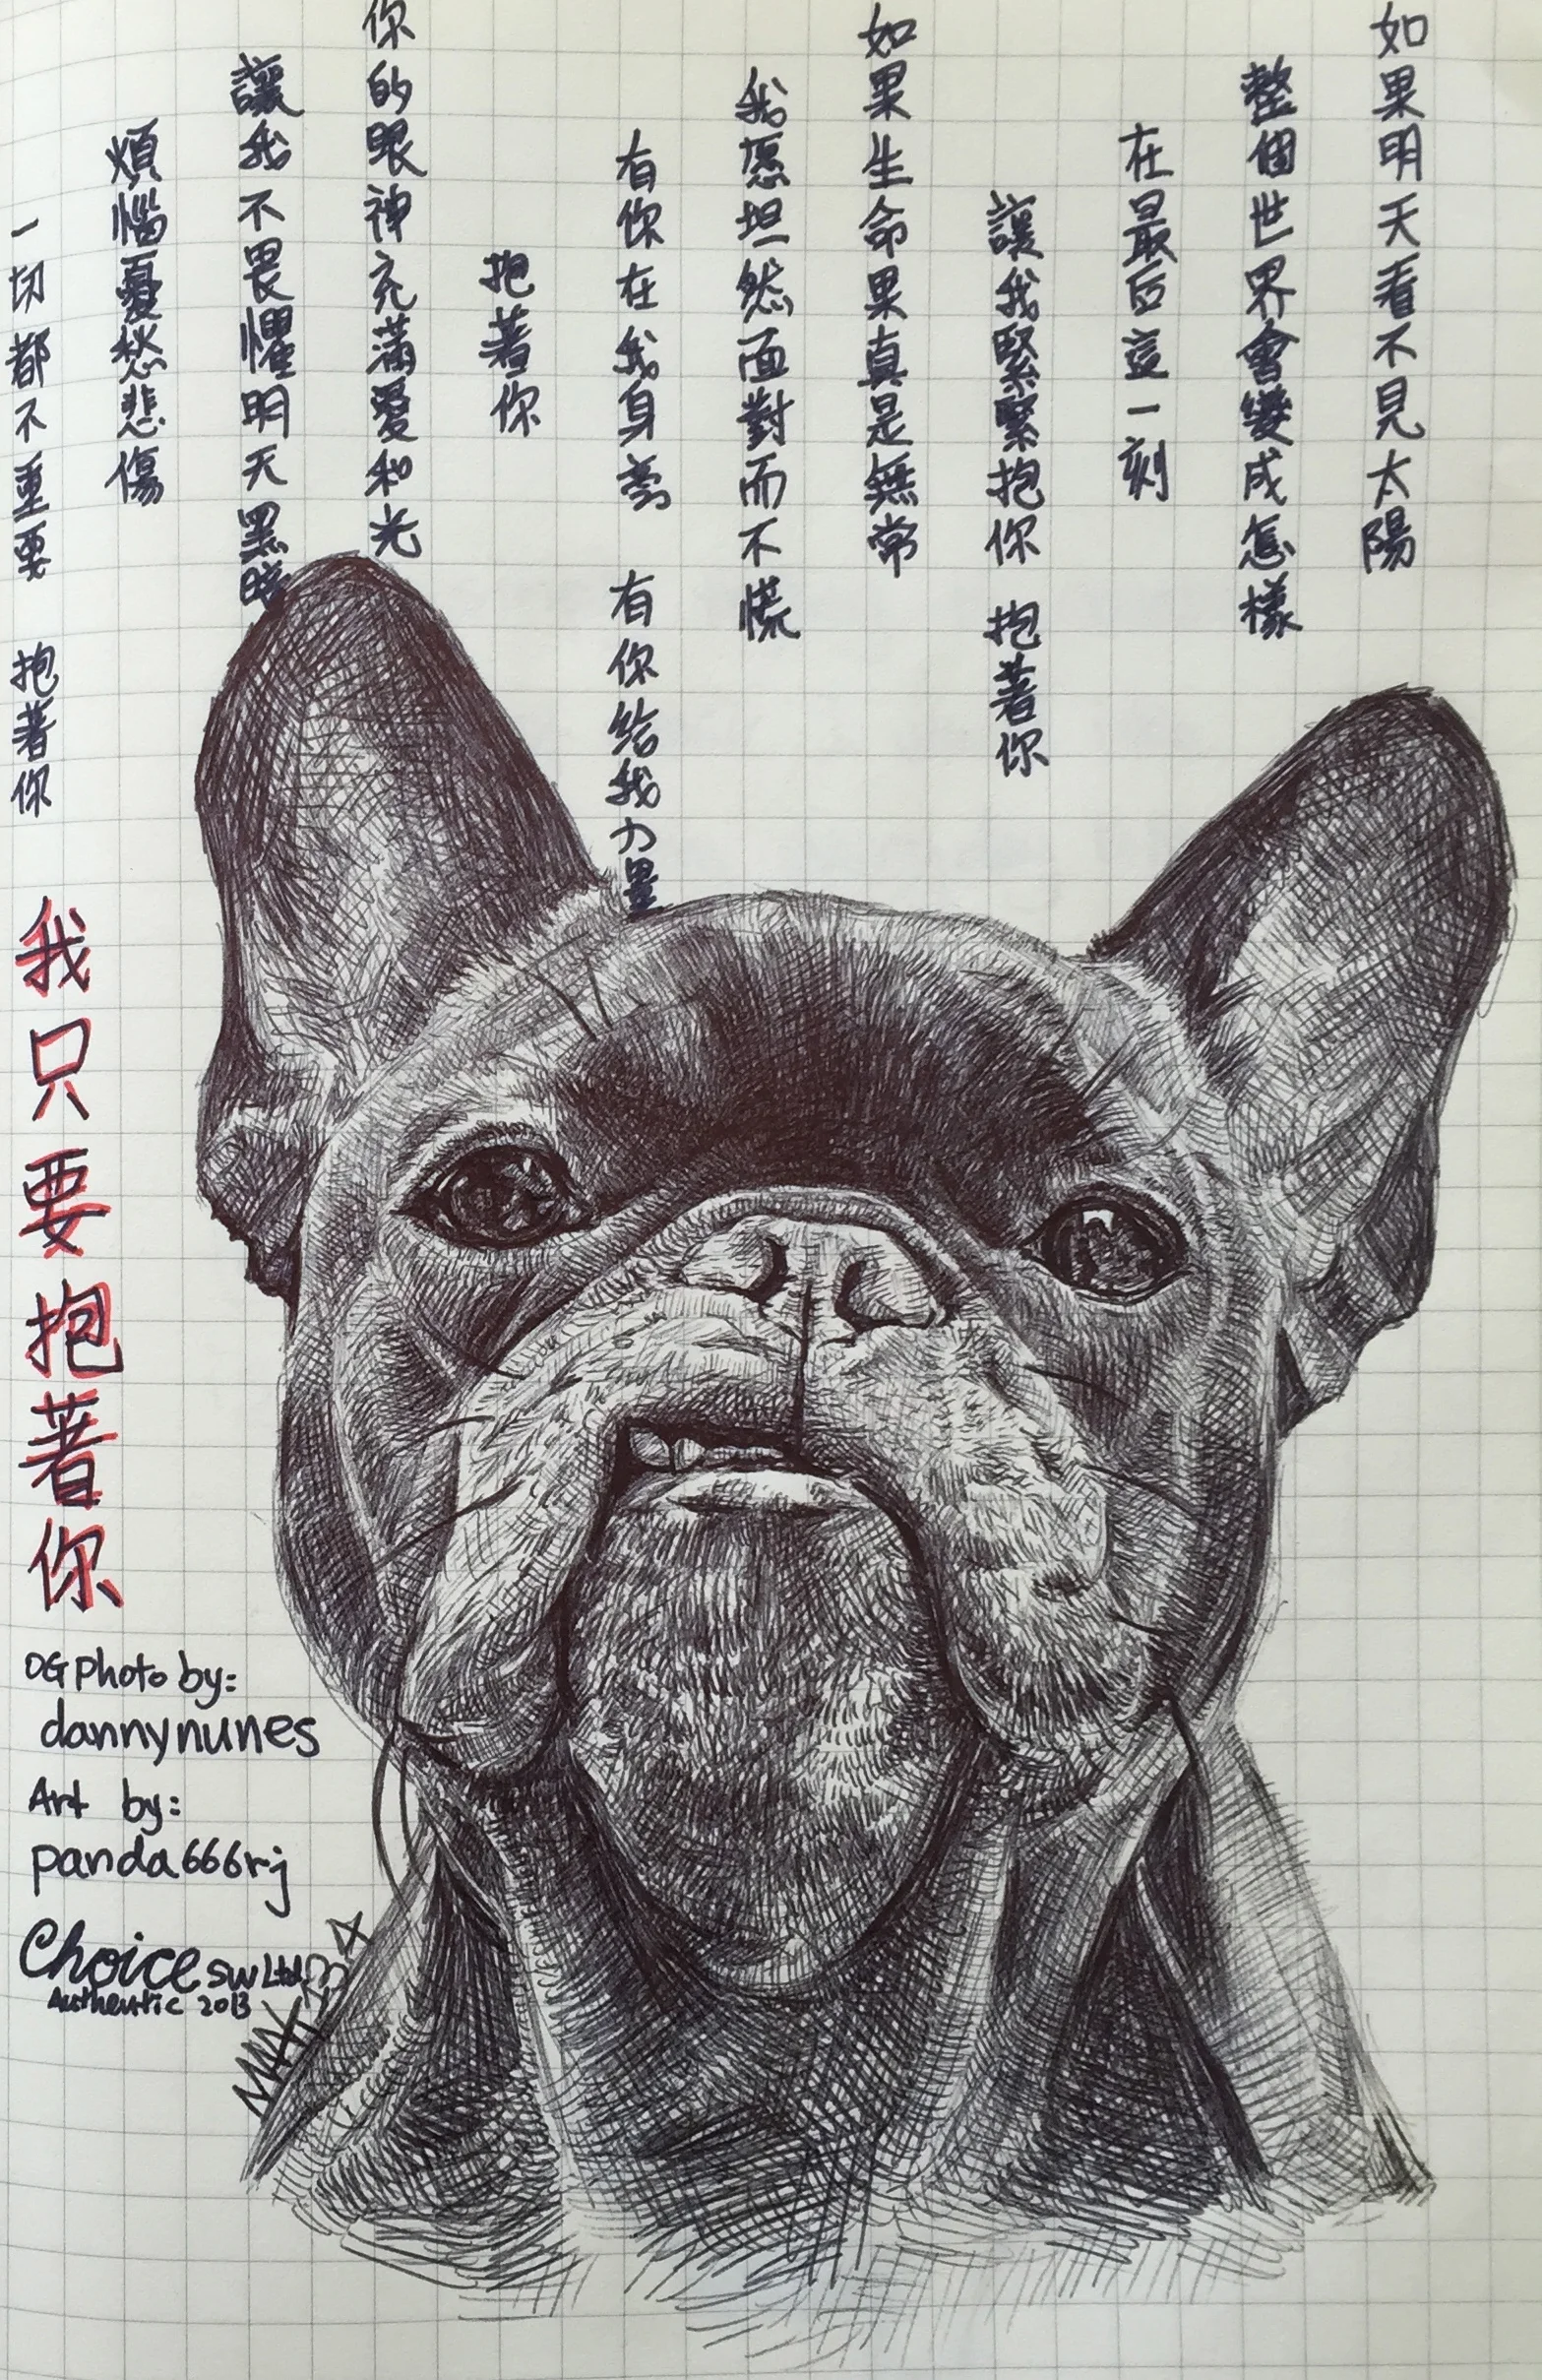 如果明天看不見太陽
整個世界會變成怎樣
在最后這一刻
讓我緊緊抱你 抱著你
如果生命果真是無常
我愿坦然面對而不慌
有你在我身旁 有你給我力量
抱著你
你的眼神充滿愛和光
讓我不畏懼明天黑暗
煩惱憂愁悲傷
一切都不重要 抱著你
我只要抱著你
OG photo by:
dannynunes
Art by:
panda666rj
Choice SW Ltd.
Authentic 2013